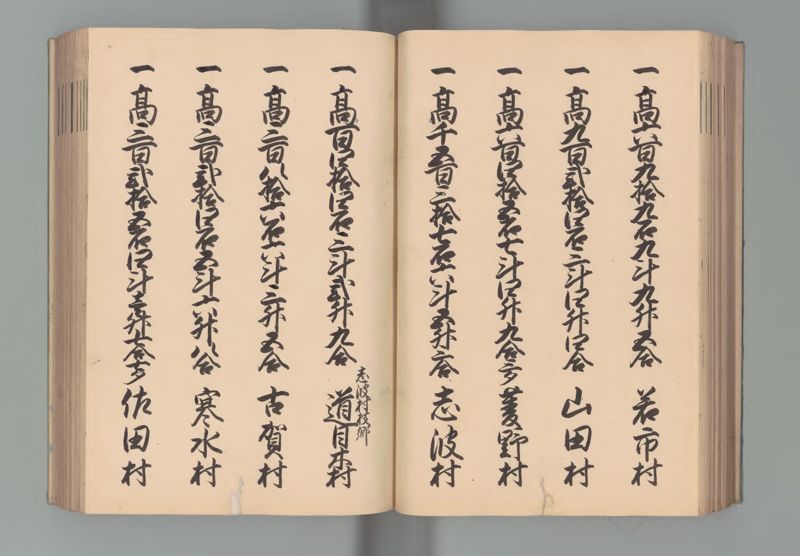 一 高六百九拾九石九斗九升五合 若市村
一 高九百弐拾四石三斗四升四合 山田村
一 高六百四拾五石七斗四升九合 菱野村
一 高千五百三拾七石六斗五升二合 志波村
志波村枝郷
一 高百四拾四石三斗弐升九合 道目木村
一 高三百八拾六石六斗三升五合 古賀村
一 高三百弐拾四石五斗六升八合 寒水村
一 高三百弐拾五石四斗壱升七合 佐田村